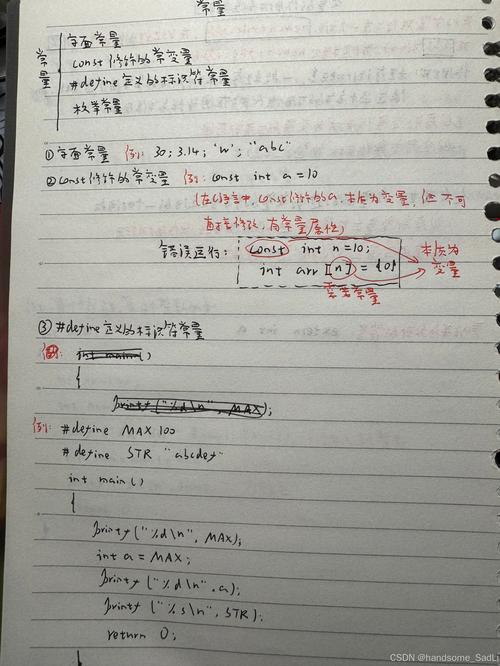 常量
常量
字面常量
const修饰的常变量
#define定义的标识符常量
枚举常量
①字面常量 例: 30; 3.14; 'w'; "abc"
②const修饰的常变量 例: const int a = 10
(在C语言中, const修饰的a, 本质为变量, 但不可
直接修改, 有常量属性)
错误运行: const int n = 10;
int arr [n] = {0}
本质为
变量
需要常量
③ #define定义的标识符常量
例: int main()
{
printf ("%d\n", MAX);
例: #define MAX 100
#define STR "abcdef"
int main()
{
printf ("%d\n", MAX);
int a = MAX;
printf ("%d\n", a);
printf ("%s\n", STR);
return 0;
CSDN @handsome_SadLi